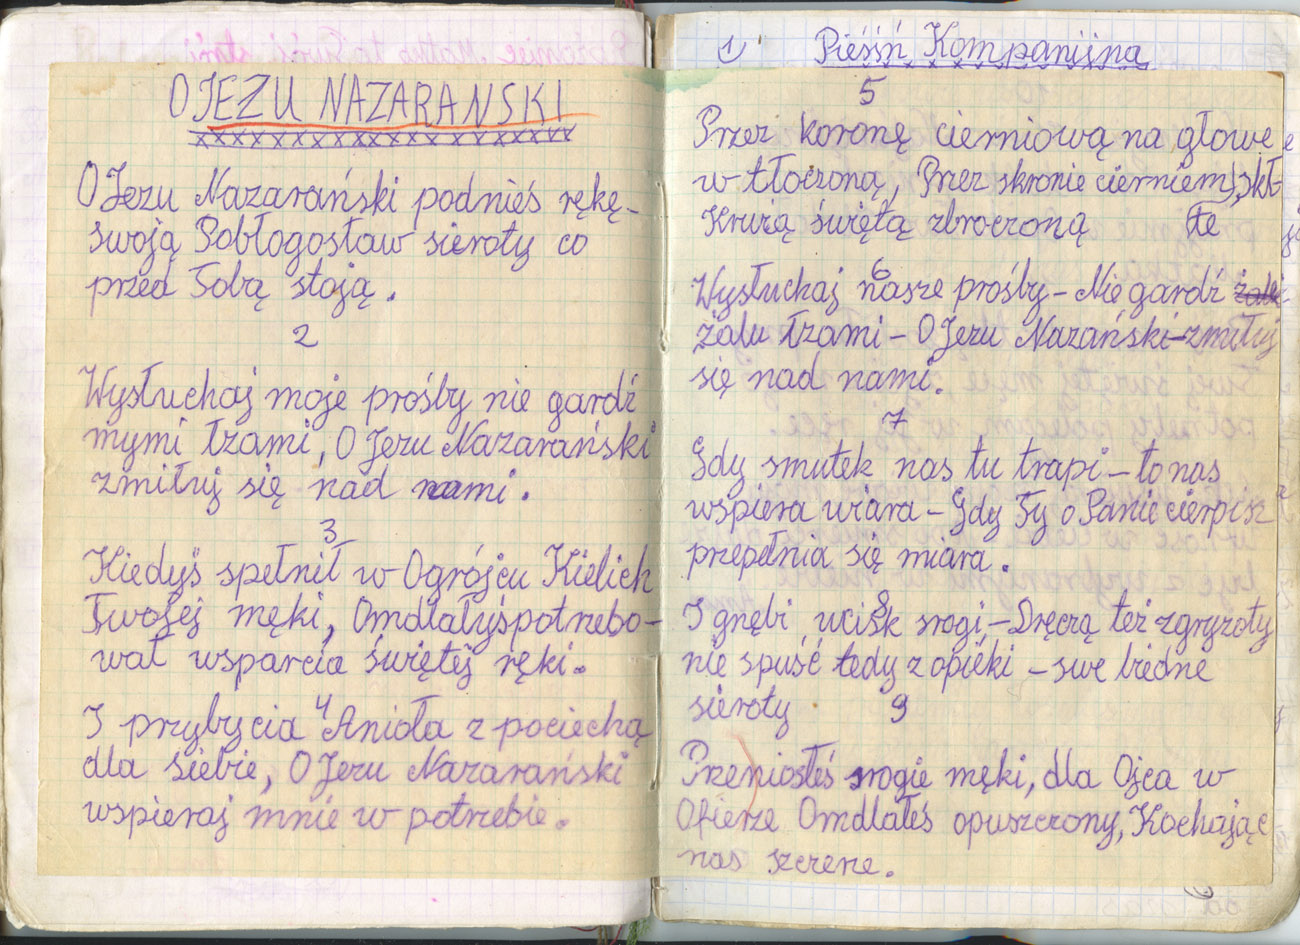 O JEZU NAZARANSKI
xxxxxxxxxxxxxxxxx
O Jezu Nazarański podnieś rękę-
swoją Pobłogosław sieroty co
przed Tobą stoją.
2
Wysłuchaj moje prośby nie gardź
mymi łzami, O Jezu Nazarański
zmiłuj się nad nami.
3
Kiedyś spełnił w Ogrójcu Kielich
Twojej męki, Omdlałyśpotrzebo-
wał wsparcia świętej ręki.
4
I przybycia Anioła z pociechą
dla siebie, O Jezu Nazarański
wspieraj mnie w potrzebie.
1) Pieśśń Kompanijna
5
Przez koronę cierniową na głowe
w tłoczoną, Przez skronie cierniem skł-
Krwią świętą zbroczoną te
6
Wysłuchaj nasze prośby - Nie gardź
żalu łzami - O Jezu Nazański-zmiłuj
się nad nami.
7
Gdy smutek nas tu trapi - to nas
wspiera wiara - Gdy Ty o Panie cierpisz
przepełnia się miara.
8
I gnębi ucisk srogi, - Dręczą też zgryzoty
nie spuść tedy z opieki - swe biedne
sieroty
9
Przeniosłeś srogie męki, dla Ojca w
Ofierze Omdlałeś opuszczony, Kochając
nas szczerze.